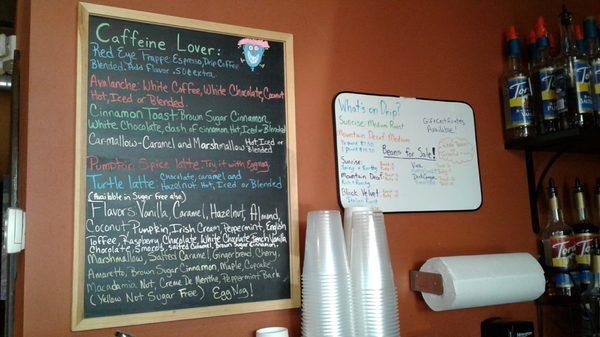 Caffeine Lover:
Red Eye Frappe: Espresso, Drip Coffee
Blended. Add Flavor .50¢ extra.
Avalanche: White Coffee, White Chocolate, Coconut
Hot, Iced or Blended.
Cinnamon Toast: Brown Sugar Cinnamon,
White Chocolate, dash of cinnamon Hot, Iced or Blended
Carmallow-Caramel and Marshmallow Hot, Iced or Blended
Pumpkin Spice latte, Try it with Eggnog
Turtle latte Chocolate, caramel and
Hazelnut Hot, Iced, or Blended
(Available in Sugar Free also)
Flavors: Vanilla, Caramel, Hazelnut, Almond,
Coconut, Pumpkin, Irish Cream, Peppermint, English
Toffee, Raspberry, Chocolate, White Chocolate, French Vanilla,
Chocolate, Smores, Salted Caramel, Brown Sugar Cinnamon,
Marshmallow, Salted Caramel, Gingerbread, Cherry,
Amaretto, Brown Sugar Cinnamon, Maple, Cupcake
Macadamia Nut, Creme De Menthe, Peppermint Bark
(Yellow Not Sugar Free) Egg Nog!
What's on Drip?
Sunrise: Medium Roast
Mountain Decaf: Medium
Gift Certificates
Available!
Beans for Sale!
Sunrise:
Mountain Decaf:
Black Velvet
Italian Roast
Viva
Torani